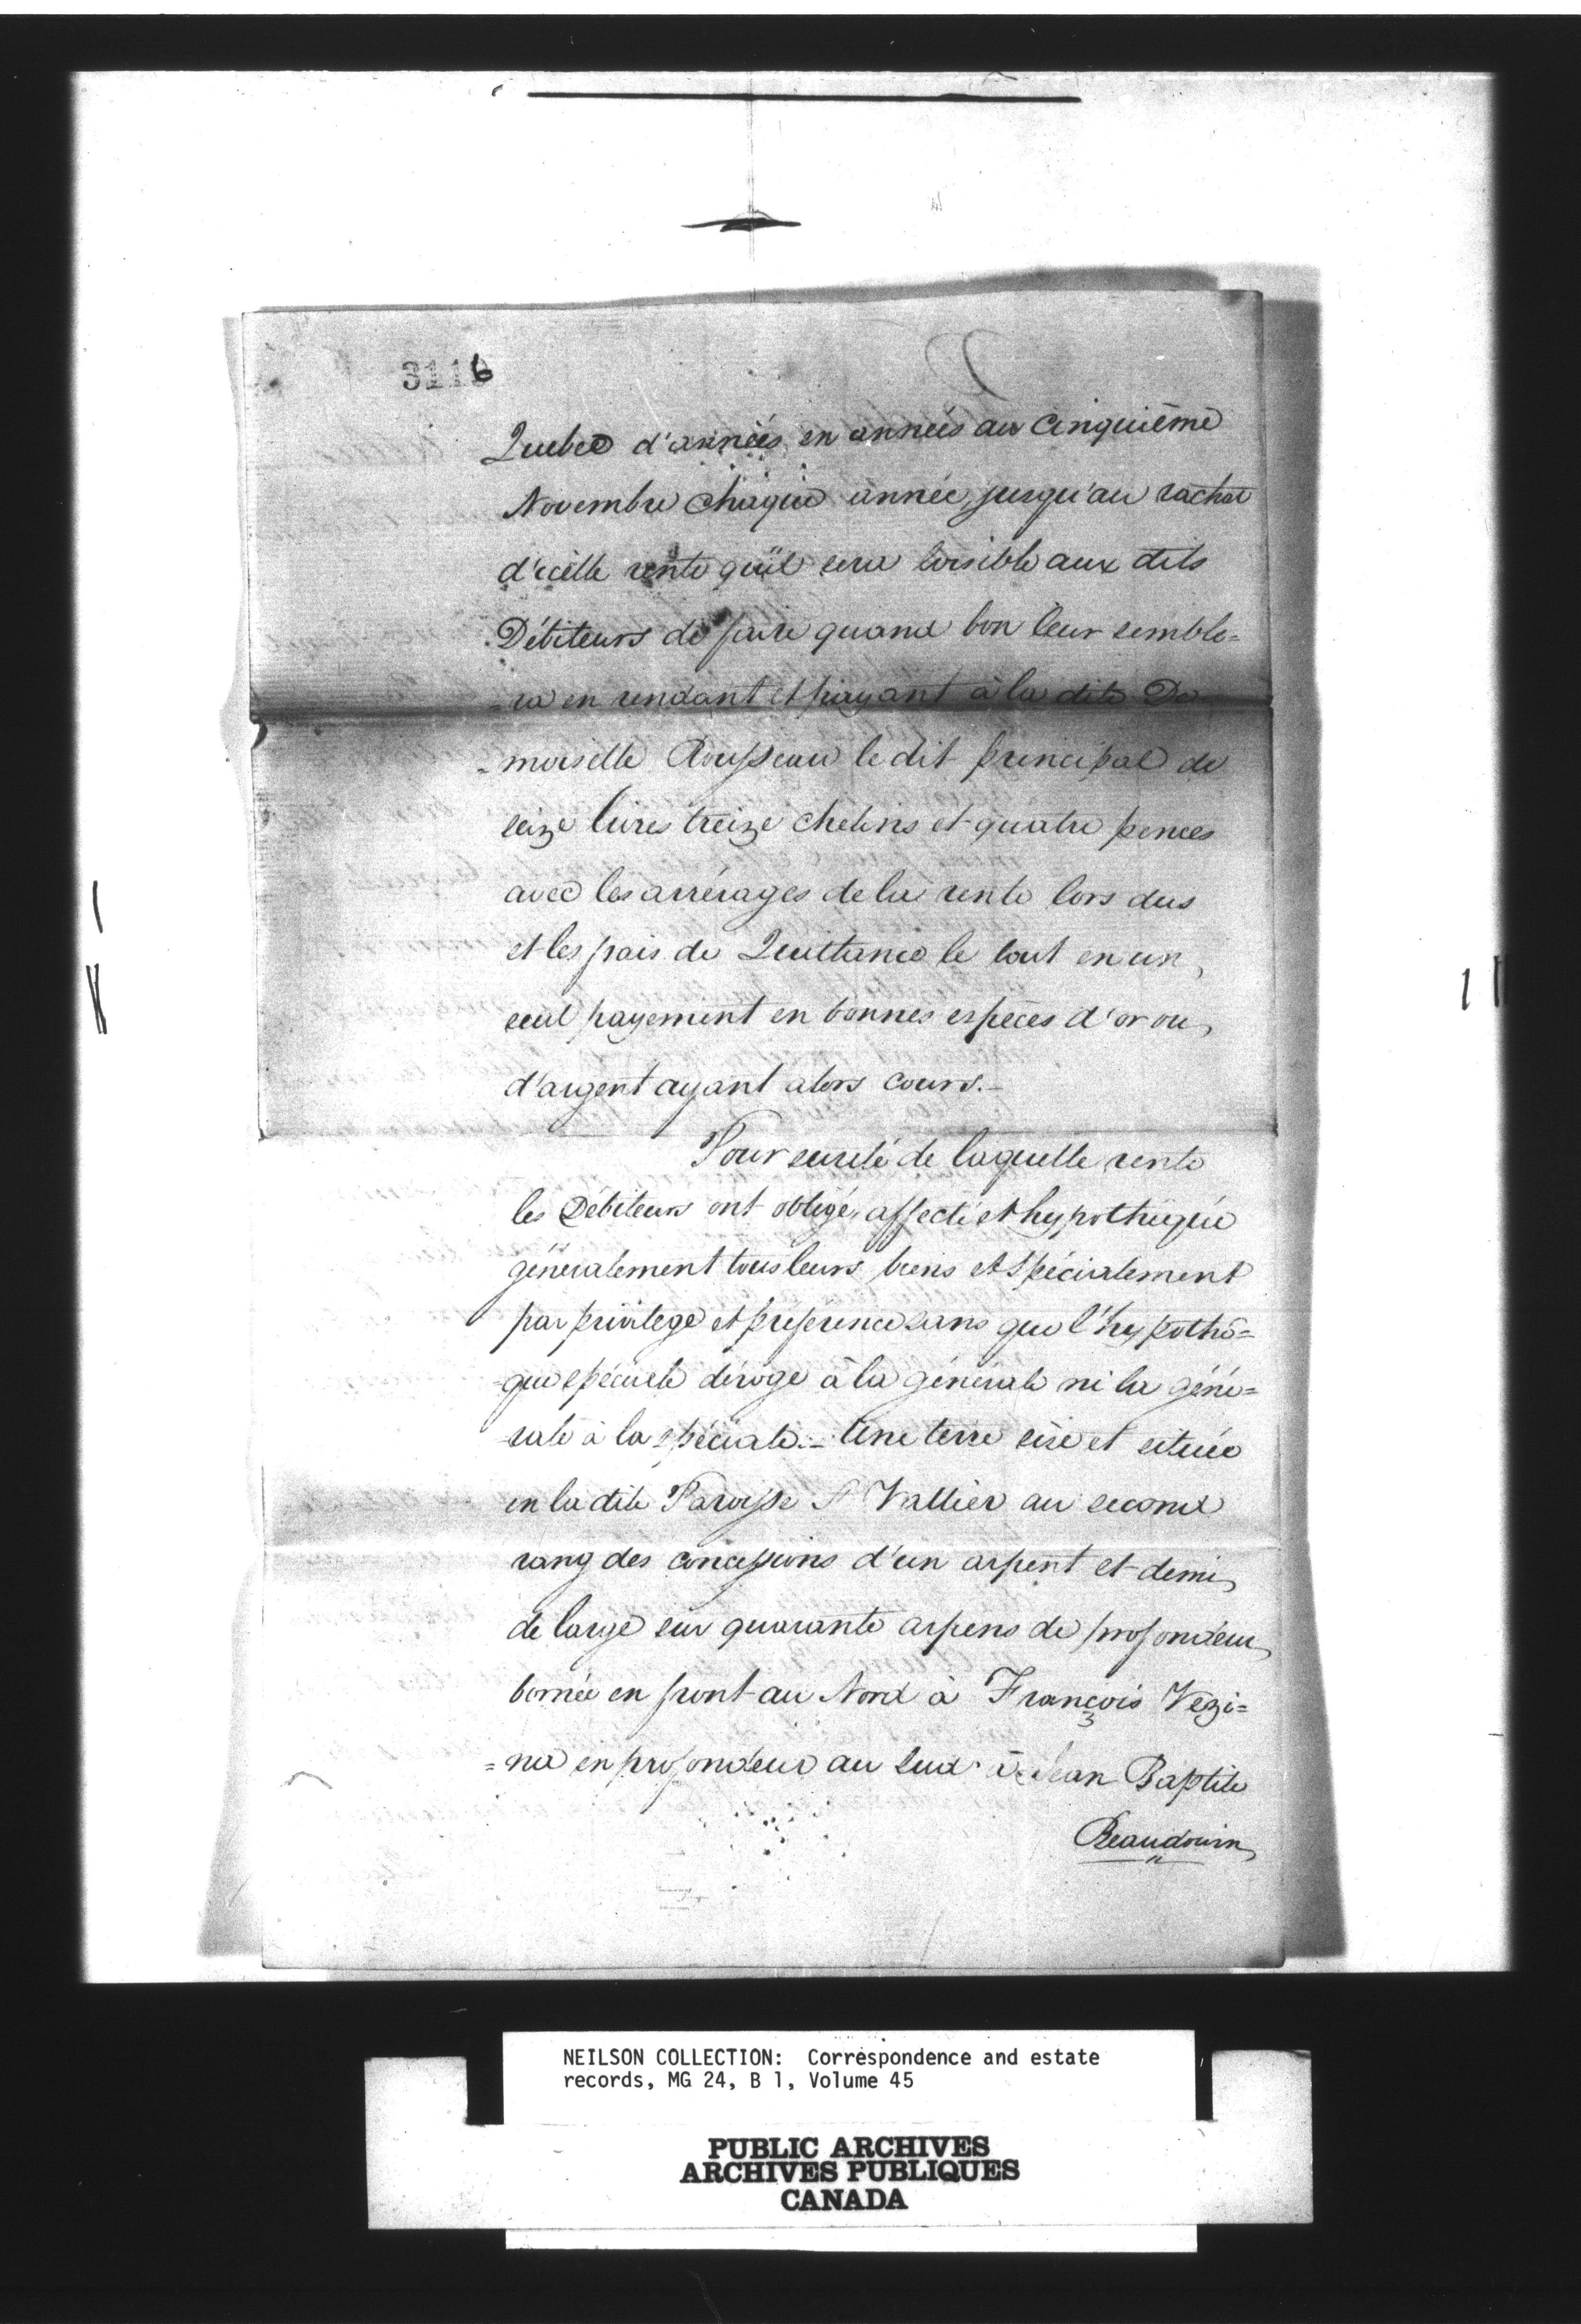 3116
Quebec d'années en années au cinquième
Novembre chaque année, jusqu'au rachat
d'icelle rente qu'il sera loisible aux dits
Débiteurs de faire quand bon leur semble=
=ra en rendant et payant à la dite De
=moiselle Rousseau le dit principal de
seize livres treize chelins et quatre pences
avec les arrérages de la rente lors dus
et les frais de Quittance le tout en un
seul payement en bonnes espèces d'or ou
d'argent ayant alors cours.-
Pour sureté de laquelle rente
les Débiteurs ont obligé, affecté et hypothéqué
généralement tous leurs biens et spécialement
par privilege et préférence sans que l'hypothè=
=que spéciale déroge à la générale ni la géné=
=rale à la spéciale.- Une terre sise et située
en la dite Paroisse St Vallier au second
rang des concessions d'un arpent et demi
de large sur quarante arpens de profondeur
bornée en front au Nord à François Vezi=
=na en profondeur au Sud à Jean Baptite
Beaudouin
NEILSON COLLECTION: Correspondence and estate
records, MG 24, B 1, Volume 45
PUBLIC ARCHIVES
ARCHIVES PUBLIQUES
CANADA